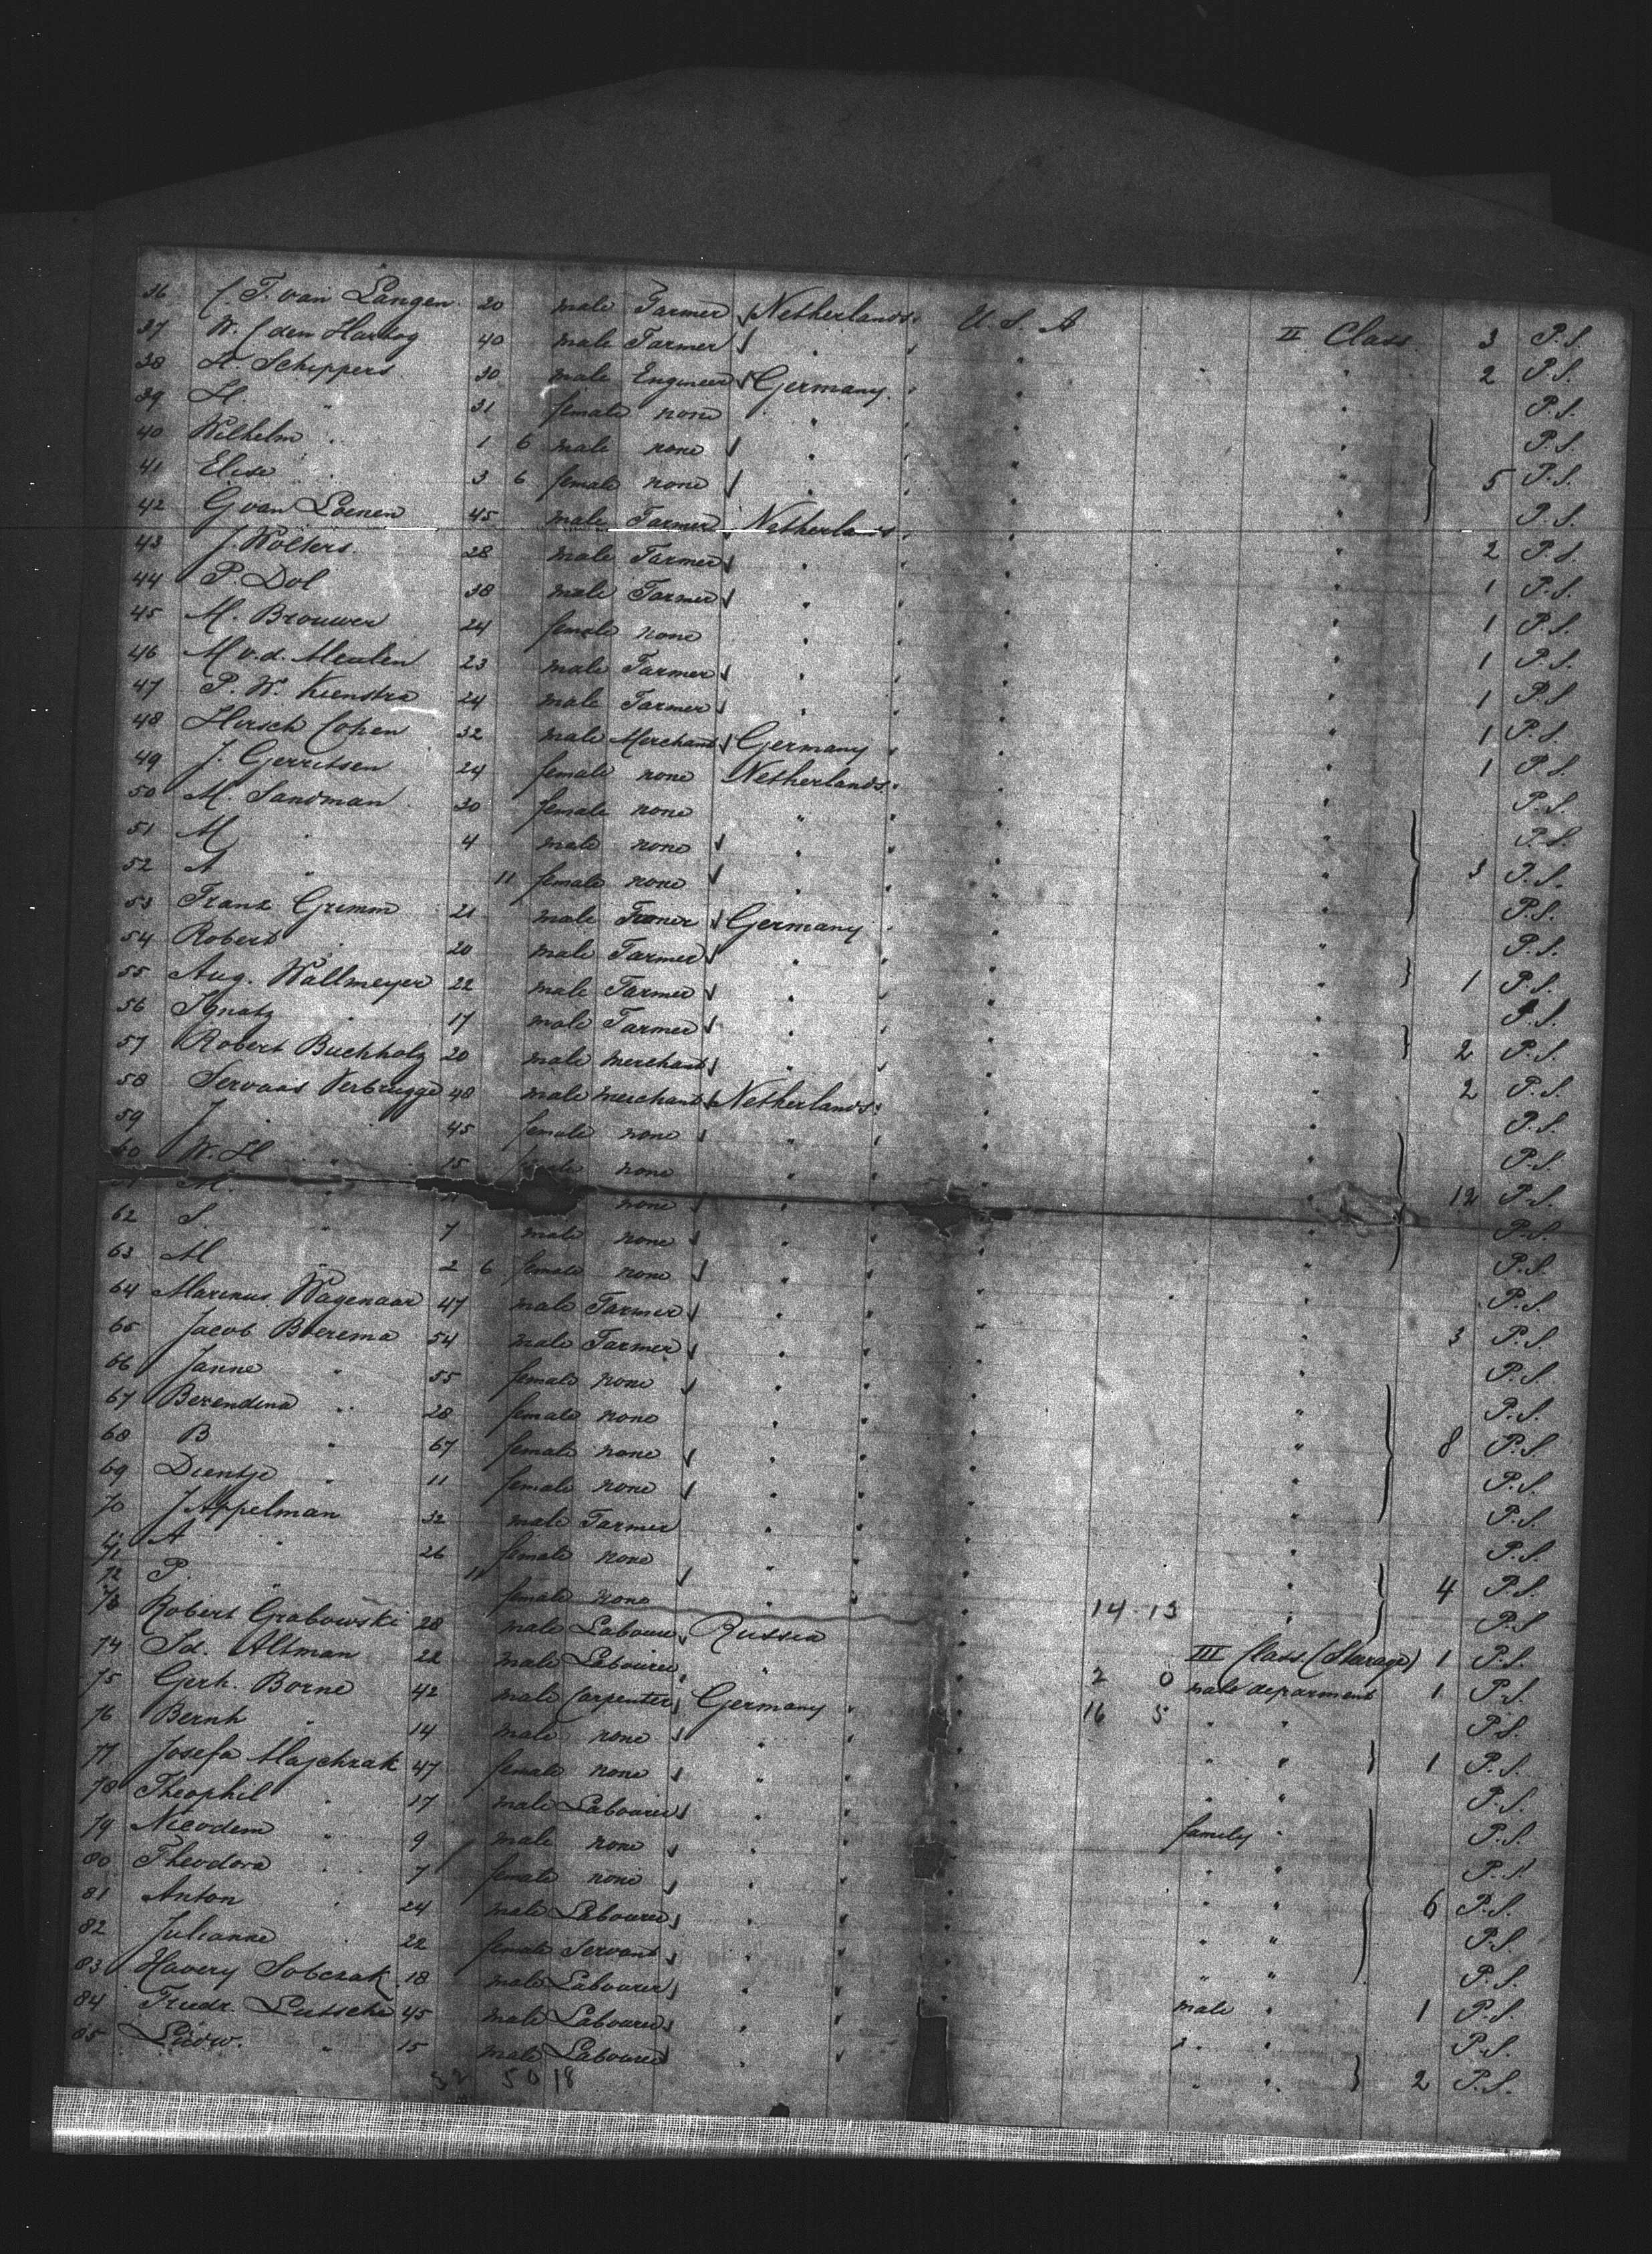 36 C. T. van Langen 20 male Farmer Netherlands U. S. A II Class 3 P.S.
37 W. C den Hartog 40 male Farmer " " " " 2 P.S.
38 H. Schippers 30 male Engineer Germany " " " P.S.
39 H. " 31 female none " " " " P.S.
40 Wilhelm " 1 6 male none " " " " 5 P.S.
41 Elise " 3 6 female none " " " " P.S.
42 G van Loenen 45 male Farmer Netherlands " " " 2 P.S.
43 J. Wolters 28 male Farmer " " " " 1 P.S.
44 P. Dol 38 male Farmer " " " " 1 P.S.
45 M. Brouwer 24 female none " " " " 1 P.S.
46 M v.d. Meulen 23 male Farmer " " " " 1 P.S
47 P. W. Kienstra 24 male Farmer " " " " 1 P.S.
48 Hirsch Cohen 32 male Merchant Germany " " " 1 P.S.
49 J. Gerritsen 24 female none Netherlands " " " P.S.
50 M. Sandman 30 female none " " " " P.S.
51 M " 4 male none " " " " 3 P.S.
52 A " 11 female none " " " " P.S.
53 Franz Grimm 21 male Farmer Germany " " " P.S.
54 Robert " 20 male Farmer " " " " 1 P.S.
55 Aug. Wallmeyer 22 male Farmer " " " " P.S.
56 Ignatz " 17 male Farmer " " " " 2 P.S.
57 Robert Buchholz 20 male merchant " " " " 2 P.S.
58 Servaas Verbrugge 48 male merchant Netherlands " " " P.S.
59 J " 45 female none " " " " P.S.
60 W. H " 15 female none " " " " 12 P.S.
M. " none " " " " P.S.
62 S. " 7 male none " " " " P.S.
63 M " 2 6 female none " " " " P.S.
64 Marinus Wagenaar 47 male Farmer " " " " 3 P.S.
65 Jacob Boerema 54 male Farmer " " " " P.S.
66 Janne " 55 female none " " " " P.S.
67 Berendina " 28 female none " " " " 8 P.S.
68 B " 67 female none " " " " P.S.
69 Dientje " 11 female none " " " " P.S.
70 J Appelman 32 male Farmer " " " " P.S.
71 A " 26 female none " " " " 4 P.S.
72 P. " 11 female none " " " " P.S
73 Robert Grabowski 28 male Labourer Russia " " 14 13 III Class. (Sterage) 1 P.S.
74 Id. Altman 22 male Labourer " " " 2 0 male deparment 1 P.S.
75 Gerh. Borne 42 male Carpenter Germany " " 16 5 " " P.S.
76 Bernh " 14 male none " " " " " 1 P.S.
77 Josefa Majchrak 47 female none " " " " " P.S.
78 Theophil " 17 male Labourer " " " family " P.S.
79 Nicodem " 9 male none " " " " " P.S.
80 Theodora " 7 female none " " " " " 6 P.S.
81 Anton " 24 male Labourer " " " " " P.S.
82 Julianne " 22 female Servant " " " " " P.S.
83 Havery Sobczak 18 male Labourer " " " male " 1 P.S.
84 Friedr. Lutsche 45 male Labourer " " " " " P.S.
85 Ludw. " 15 male Labourer " " " " " 2 P.S.
32 50 18